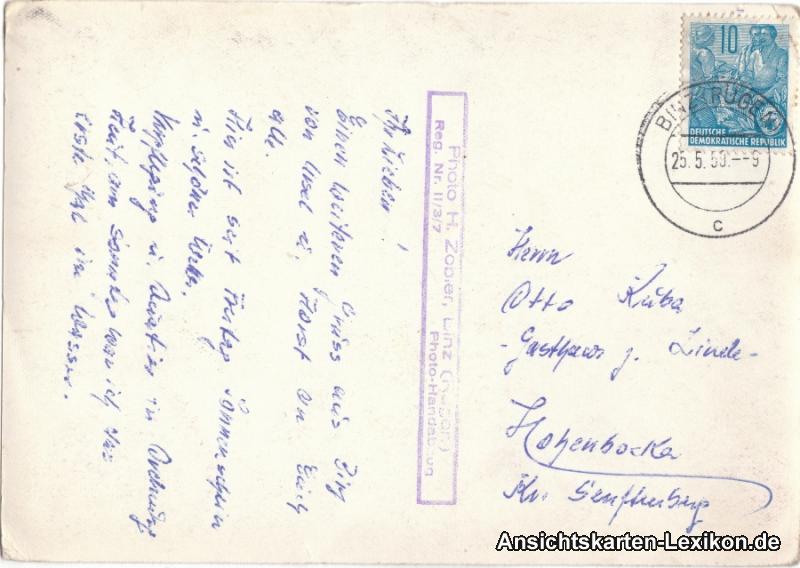 Ihr Lieben!
Einen weiteren Gruss aus Binz
von Ursel u. Horst an Euch
alle.
Hier ist seit Freitag Sonnenschein
u. schönes Wetter.
Verpflegung u. Quartier in Ordnung
Heut, am Sonntag war ich das
erste Mal im Wasser.
Photo H. Zobler, Binz (Rügen)
Reg. Nr. II/3/7 Photo-Handabzug
10
DEUTSCHE
DEMOKRATISCHE REPUBLIK
BINZ (RÜGEN)
25.5.58.--9
c
Herrn
Otto Kuba
- Gasthaus z. Linde -
Hohenbocka
Kr. Senftenberg
Ansichtskarten-Lexikon.de